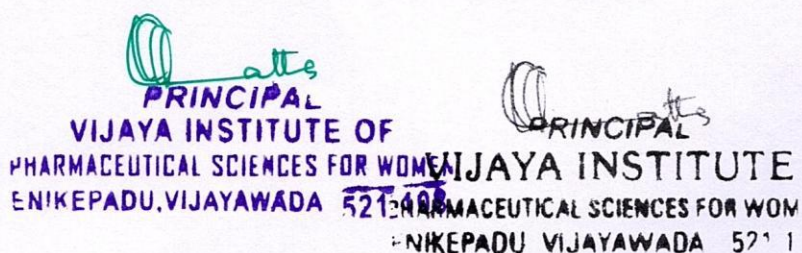 PRINCIPAL
VIJAYA INSTITUTE OF
PHARMACEUTICAL SCIENCES FOR WOM
ENIKEPADU,VIJAYAWADA 521
PRINCIPAL
VIJAYA INSTITUTE
PHARMACEUTICAL SCIENCES FOR WOM
ENIKEPADU VIJAYAWADA 521 1